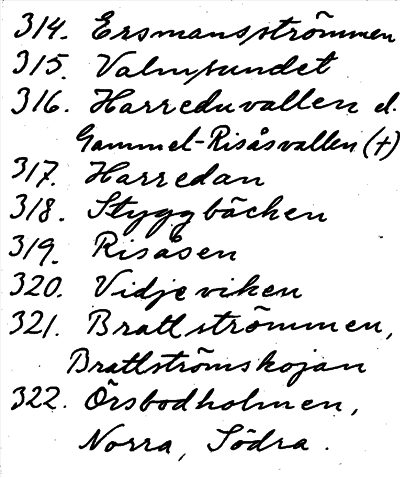 314. Ersmansströmmen
315. Valmsundet
316. Harreduvallen el.
Gammel-Risåsvallen (+)
317. Harredan
318. Styggbäcken
319. Risåsen
320. Vidjeviken
321. Brattströmmen,
Brattströmskojan
322. Örsbodholmen,
Norra, Södra.